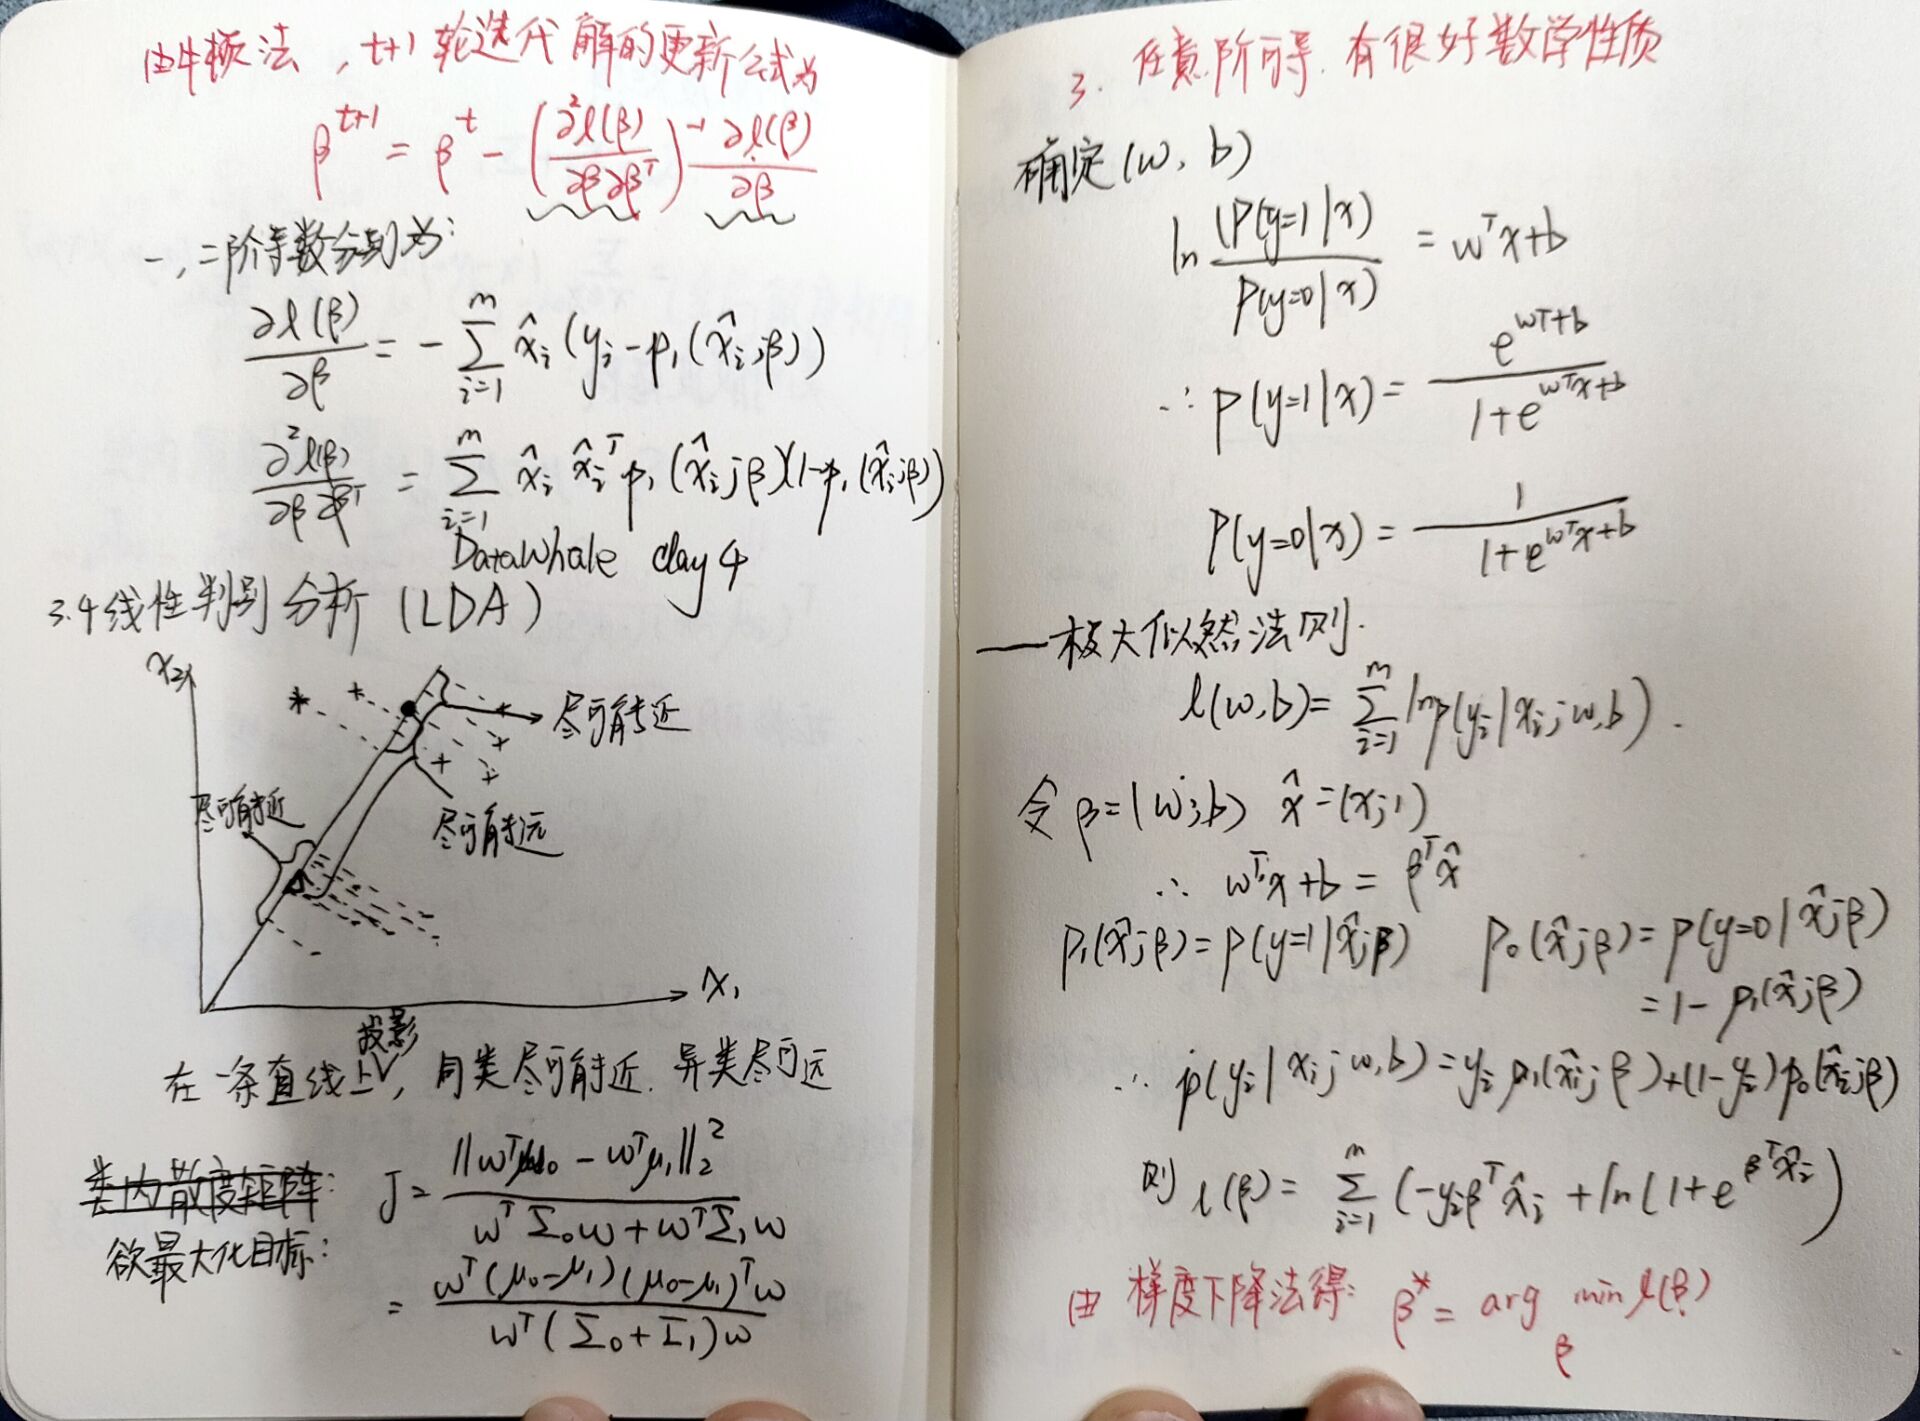 由牛顿法，t+1轮迭代解的更新公式为
β^{t+1} = β^t - (∂²ℓ(β)/∂β∂β^T)^{-1} ∂ℓ(β)/∂β
一,二阶导数分别为：
∂ℓ(β)/∂β = - ∑_{i=1}^{m} x̂_i (y_i - p_1(x̂_i;β))
∂²ℓ(β)/∂β∂β^T = ∑_{i=1}^{m} x̂_i x̂_i^T p_1(x̂_i;β)(1-p_1(x̂_i;β))
DataWhale day4
3.4线性判别分析(LDA)
x_2
尽可能近
尽可能近
尽可能远
x_1
投影
在一条直线上，同类尽可能近.异类尽可远
类内散度矩阵：
J = ||w^Tμ_0 - w^Tμ_1||_2^2 / w^TΣ_0w + w^TΣ_1w
欲最大化目标：
= w^T(μ_0-μ_1)(μ_0-μ_1)^Tw / w^T(Σ_0+Σ_1)w
3. 任意阶可导.有很好数学性质
确定(w,b)
ln (P(y=1|x) / P(y=0|x) = w^Tx+b
∴ p(y=1|x) = e^{wT+b} / 1+e^{w^Tx+b}
P(y=0|x) = 1 / 1+e^{w^Tx+b}
—极大似然法则.
ℓ(w,b) = ∑_{i=1}^{m} ln p(y_i|x_i;w,b).
令β=(w;b) x̂=(x;1)
∴ w^Tx+b = β^Tx̂
p_1(x̂;β) = p(y=1|x̂;β) p_0(x̂;β) = p(y=0|x̂;β)
= 1- p_1(x̂;β)
∴ p(y_i|x_i;w,b) = y_i p_1(x̂_i;β)+(1-y_i)p_0(x̂_i;β)
则 ℓ(β) = ∑_{i=1}^{m} (-y_iβ^Tx̂_i + ln(1+e^{β^Tx̂_i})
由梯度下降法得： β^* = arg min_β ℓ(β)